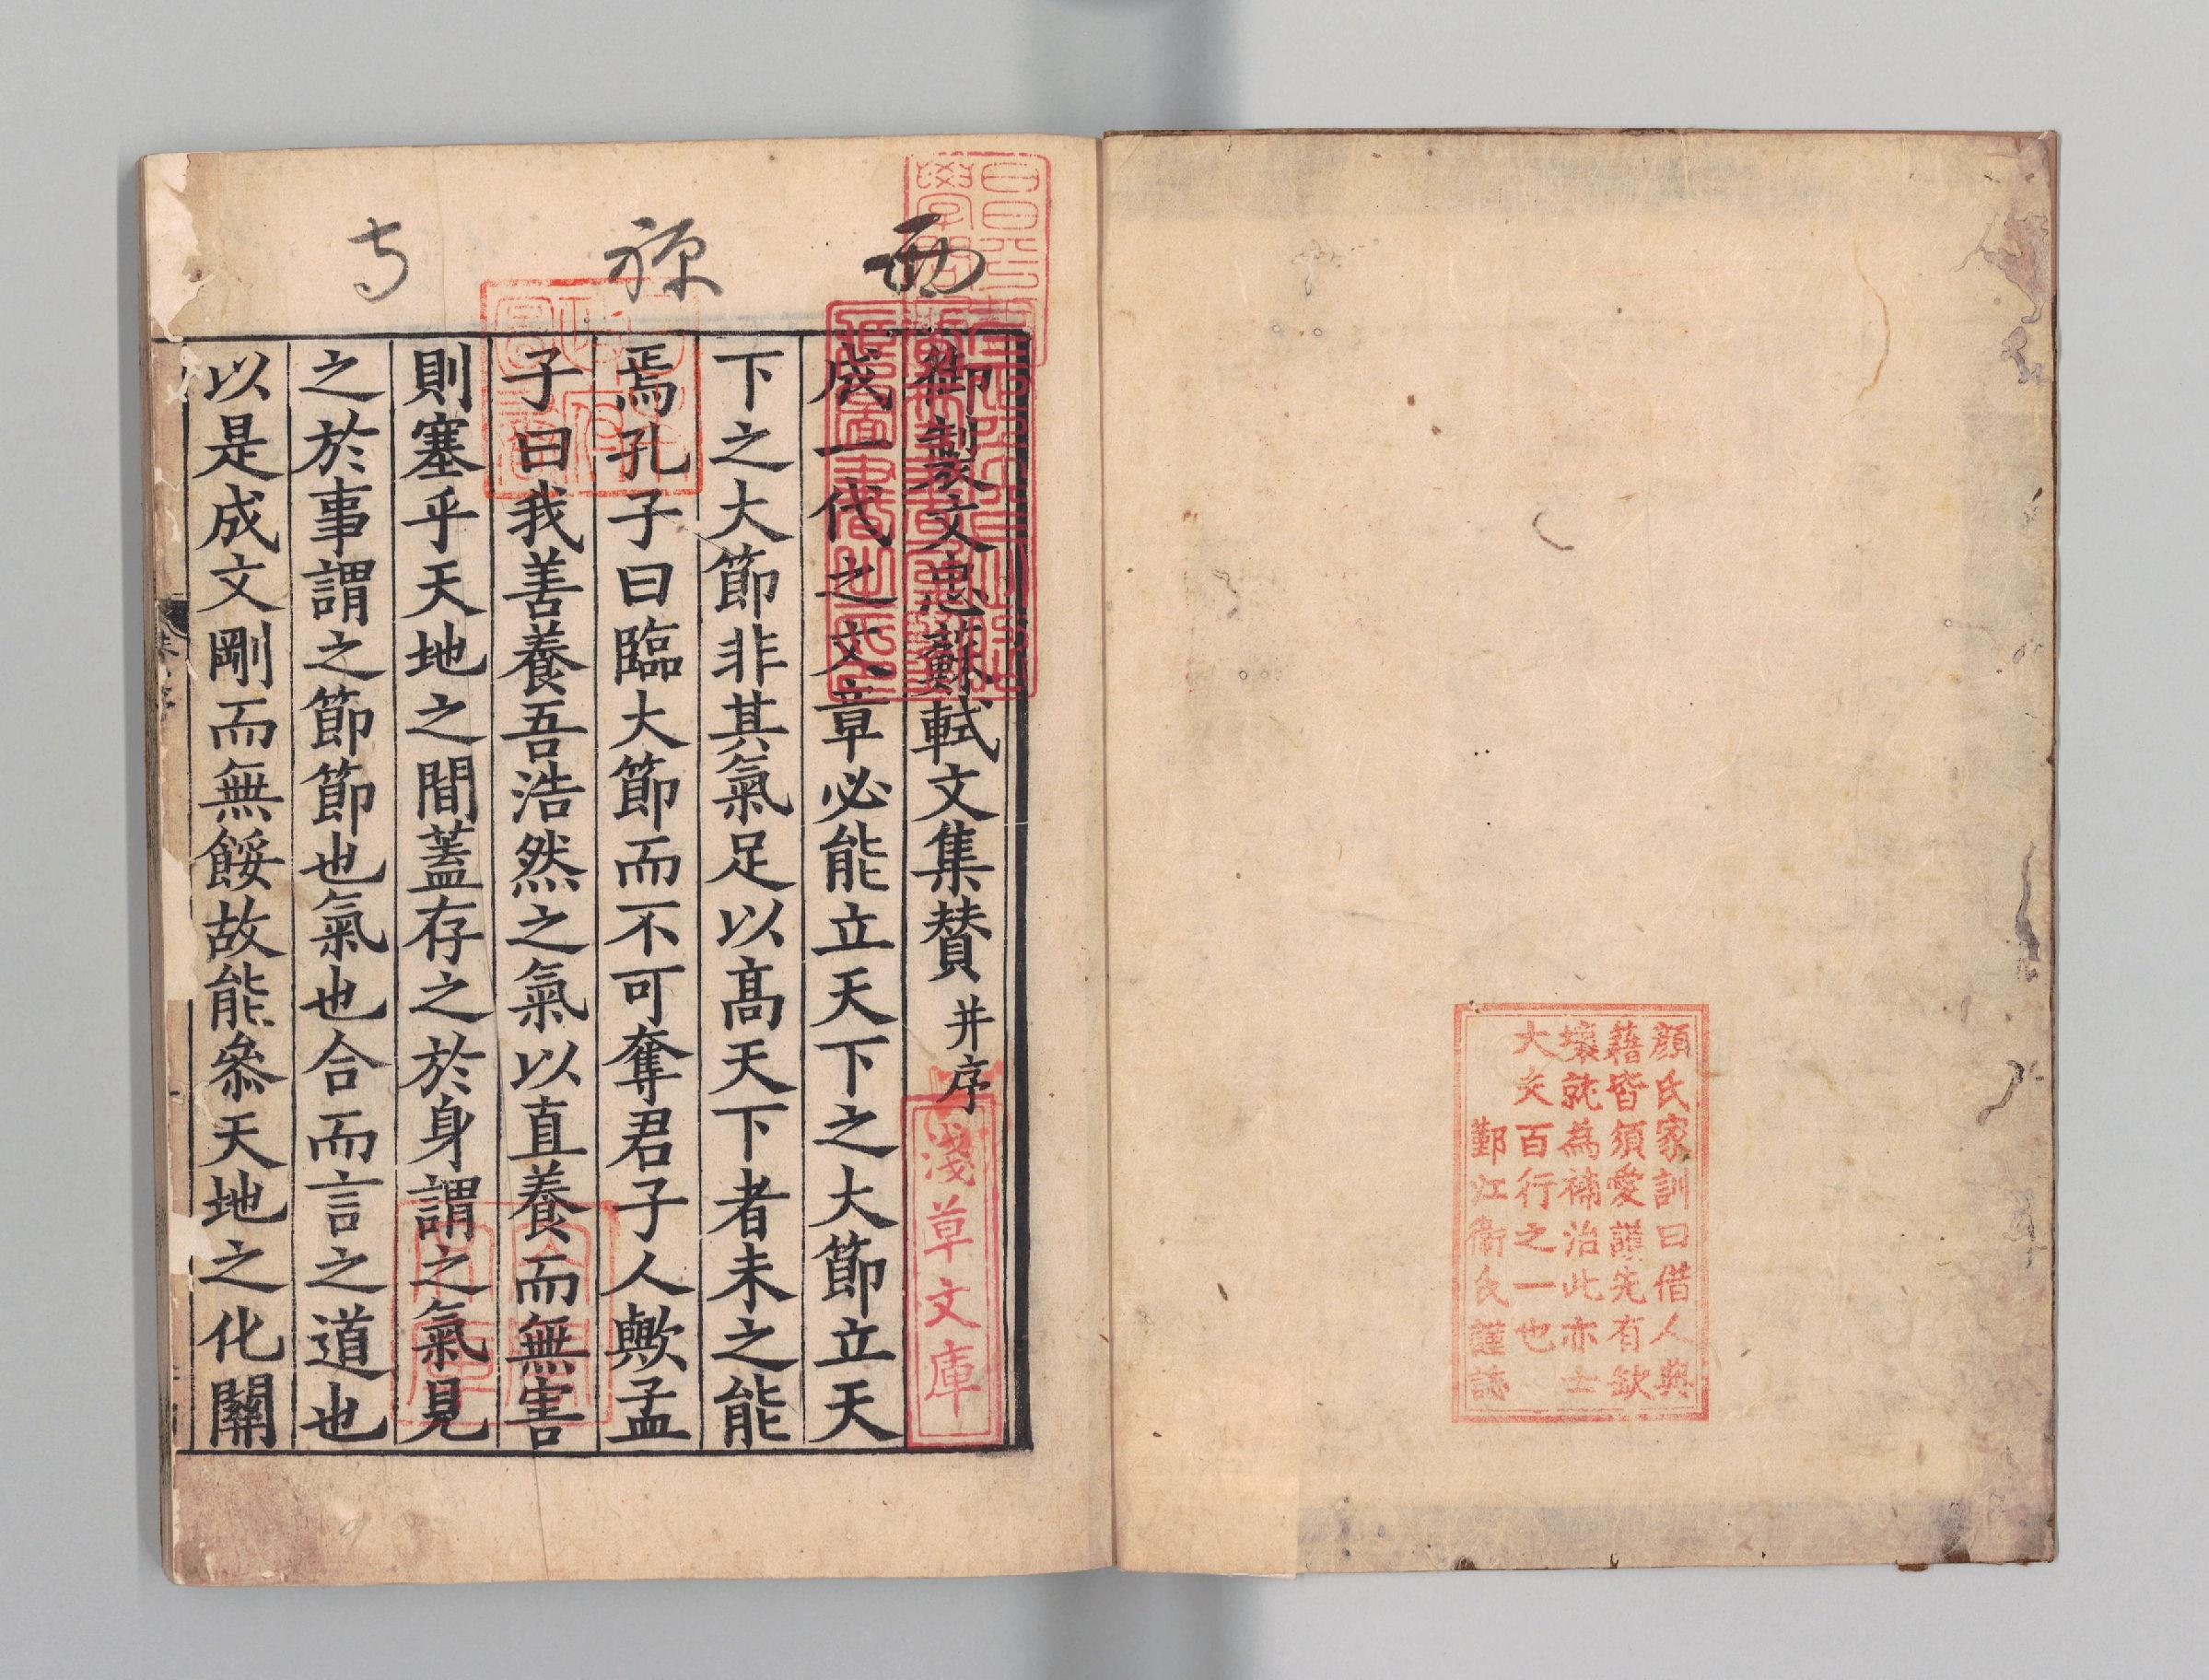 顔氏家訓曰借人典
藉皆須愛護先有缺
壞就為補治此亦士
大夫百行之一也
鄞江衞氏謹誌
西源寺
御製文忠蘇軾文集賛并序
成一代之文章必能立天下之大節立天
下之大節非其氣足以髙天下者未之能
焉孔子曰臨大節而不可奪君子人歟孟
子曰我善養吾浩然之氣以直養而無害
則塞乎天地之間蓋存之於身謂之氣見
之於事謂之節節也氣也合而言之道也
以是成文剛而無餒故能叅天地之化關
淺草文庫